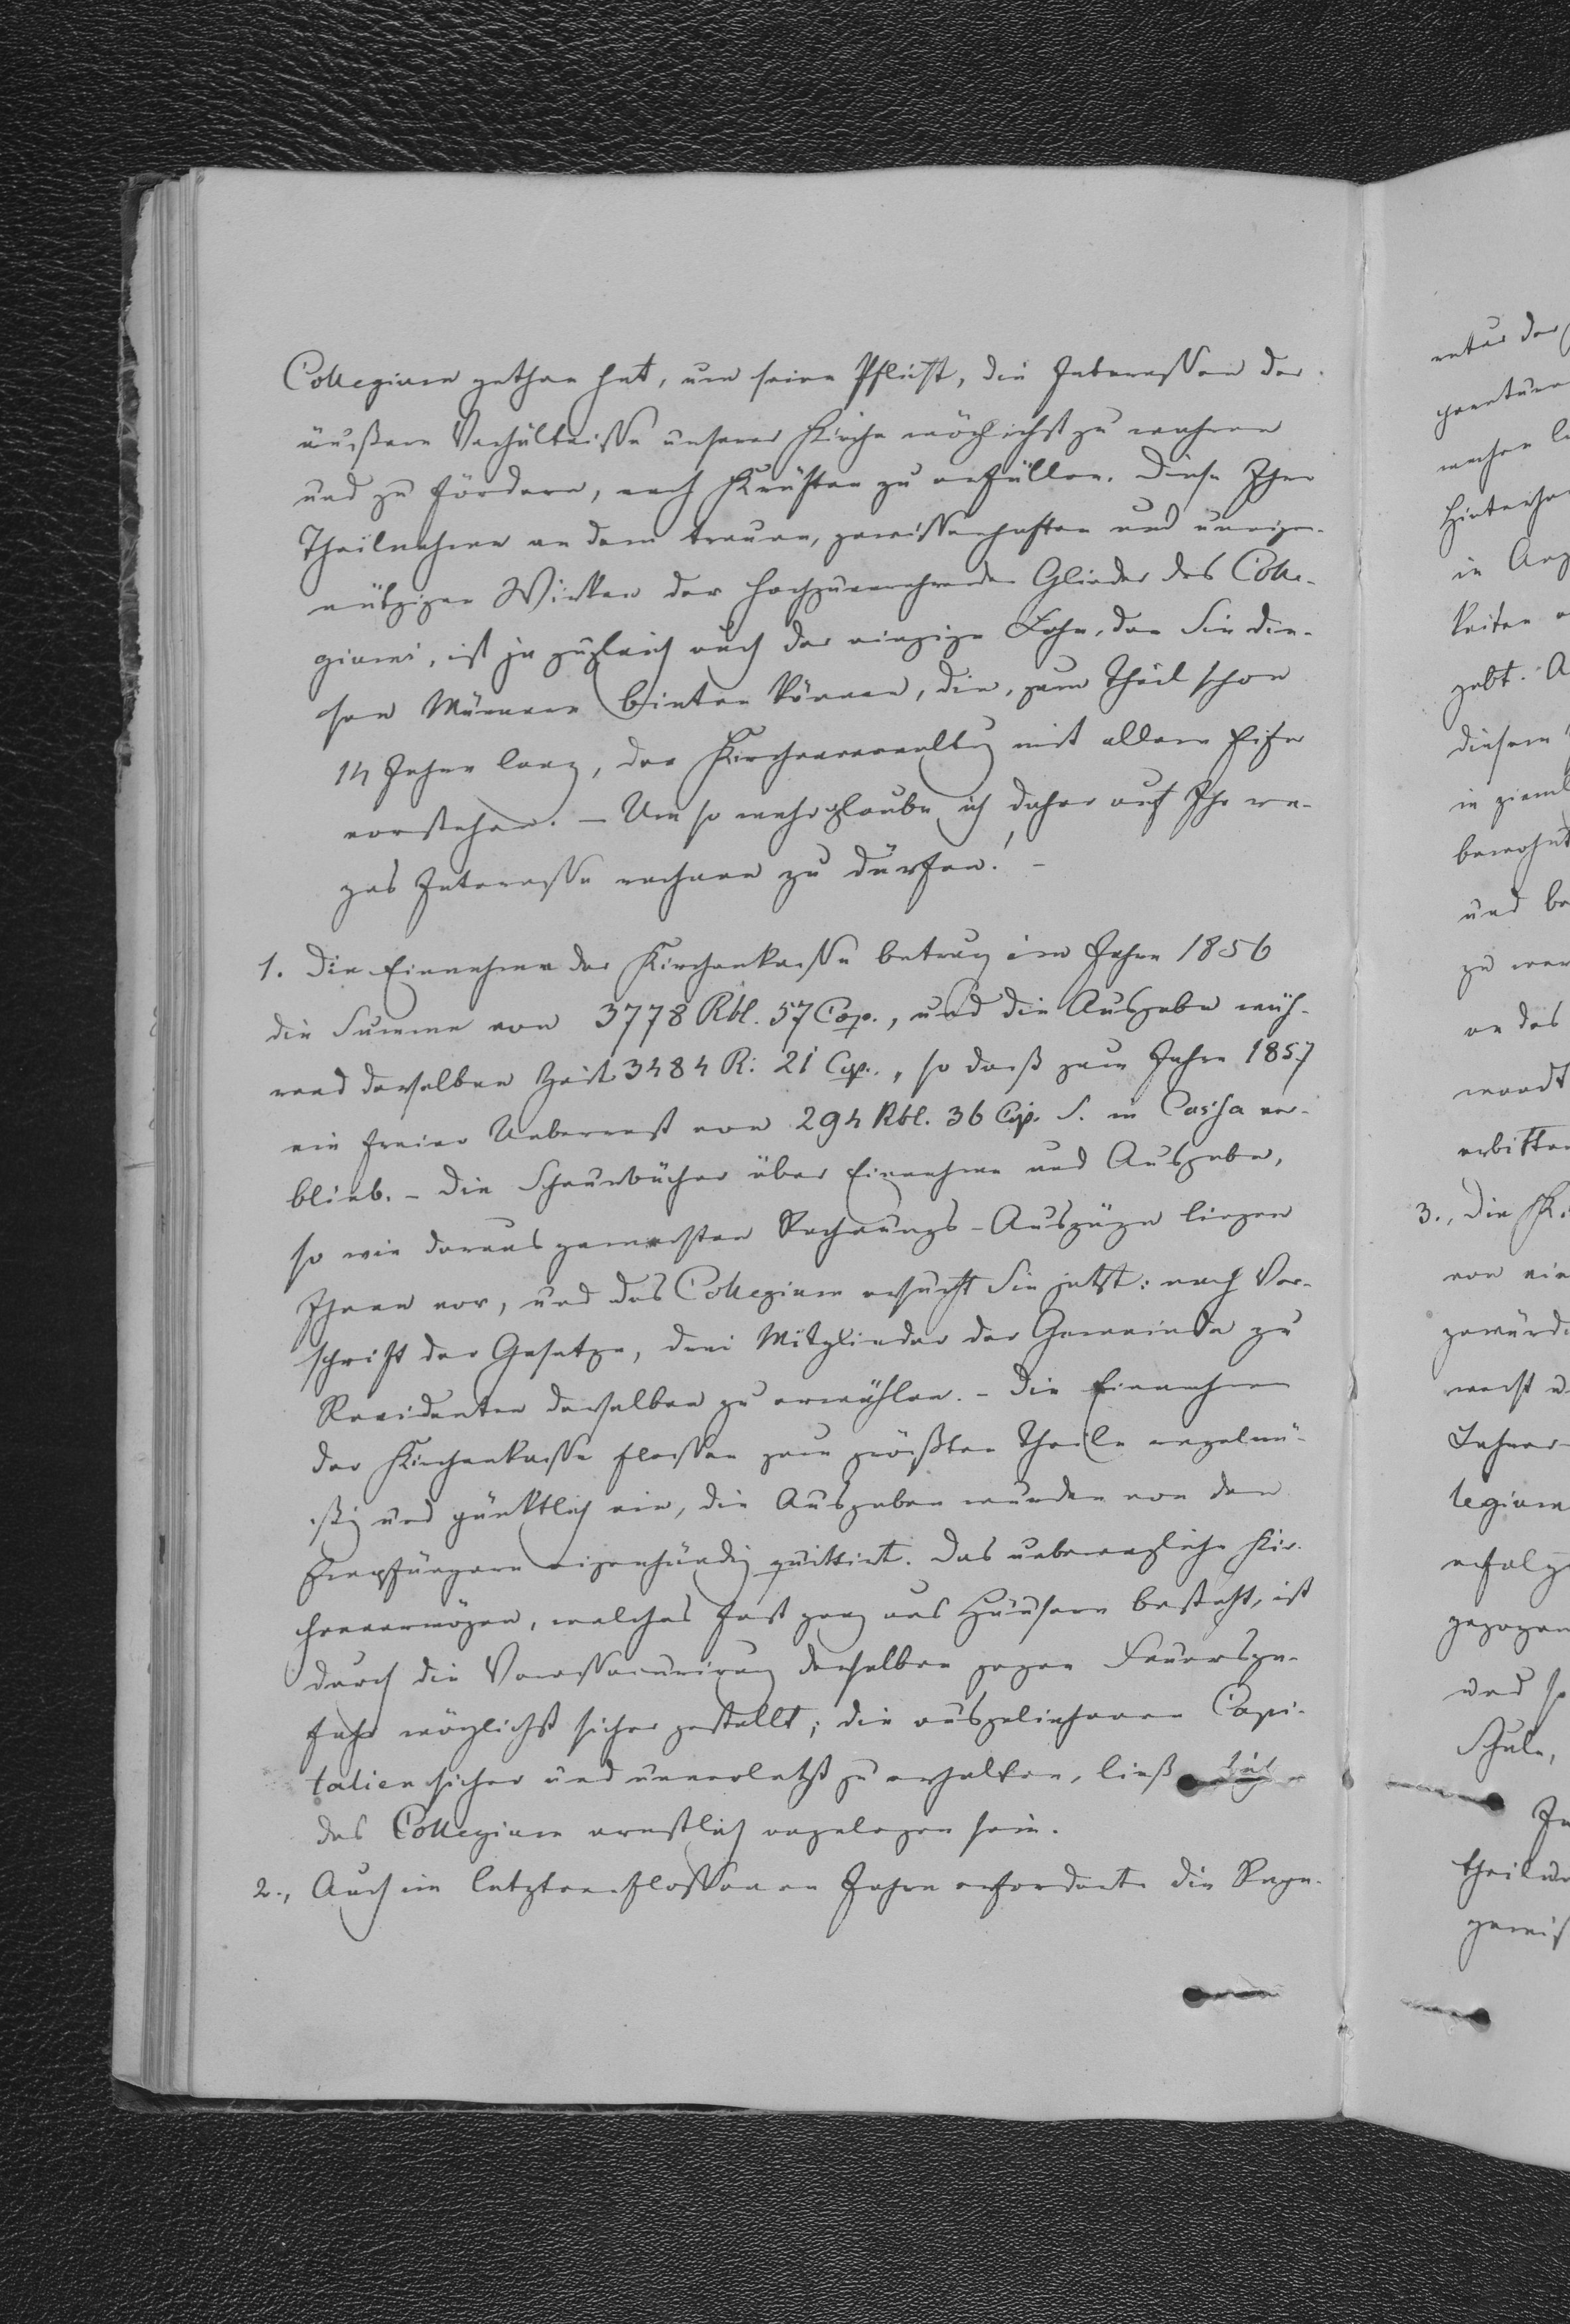 Collegium gethan hat, um seine Pflicht, die Interessen der
äußern Verhältnisse unserer Kirche möglichst zu wahren
und zu fördern, nach Kräften zu erfüllen. Diese Ihre
Theilnahme an dem treuen, gewissenhaften und uneigen-
nützigen Wirken der hochzuverehrenden Glieder des Colle-
giums, ist ja zugleich auch der einzige Lohn, den Sie die-
sen Männern bieten können, die, zum Theil schon
14 Jahre lang, der Kirchenverwaltung mit allem Eifer
vorstehen. – Um so mehr glaube ich daher auf Ihr re-
ges Interesse rechnen zu dürfen! –
1. Die Einnahme der Kirchenkasse betrug im Jahre 1856
die Summe von 3778 Rbl. 57 Cop., und die Ausgabe wäh-
rend derselben Zeit 3484 R. 21 Cop., so daß zum Jahre 1857
ein freier Ueberrest von 294 Rbl. 36 Cop. S. in Cassa ver-
blieb. – Die Schnurbücher über Einnahme und Ausgabe,
so wie daraus gemachten Rechnungs-Auszüge liegen
Ihnen vor, und das Collegium ersucht Sie jetzt: nach Vor-
schrift der Gesetze, drei Mitglieder der Gemeinde zu
Revidenten derselben zu erwählen. – Die Einnahmen
der Kirchenkasse flossen zum größten Theile regelmä-
ßig und pünktlich ein, die Ausgaben wurden von den
Empfängern eigenhändig quittirt. Das unbewegliche Kir-
chenvermögen, welches fast ganz aus Häusern besteht, ist
durch die Verassecurirung derselben gegen Feuersge-
fahr möglichst sicher gestellt; die ausgeliehenen Capi-
talien sicher und unverletzt zu erhalten, ließ sich
das Collegium ernstlich angelegen sein.
2., Auch im letztverflossenen Jahre erforderte die Repa-
ratur der
in
und
an das
3., die Ki
von ein
legium
und so
Schule,